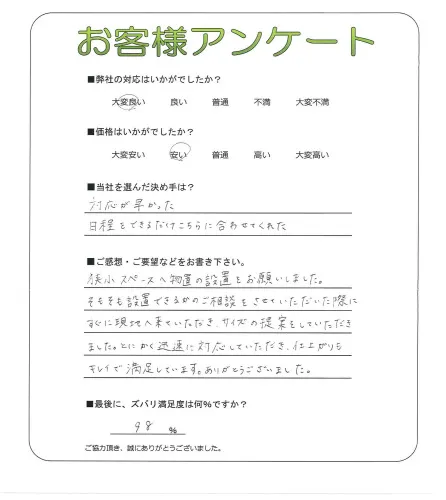 お客様アンケート
■弊社の対応はいかがでしたか？
大変良い 良い 普通 不満 大変不満
■価格はいかがでしたか？
大変安い 安い 普通 高い 大変高い
■当社を選んだ決め手は？
対応が早かった
日程をできるだけこちらに合わせてくれた
■ご感想・ご要望などをお書き下さい。
狭小スペースへ物置の設置をお願いしました。
そもそも設置できるかのご相談をさせていただいた際に
すぐに現地へ来ていただき、サイズの提案をしていただき
ました。とにかく迅速に対応していただき、仕上がりも
キレイで満足しています。ありがとうございました。
■最後に、ズバリ満足度は何%ですか？
98 %
ご協力頂き、誠にありがとうございました。